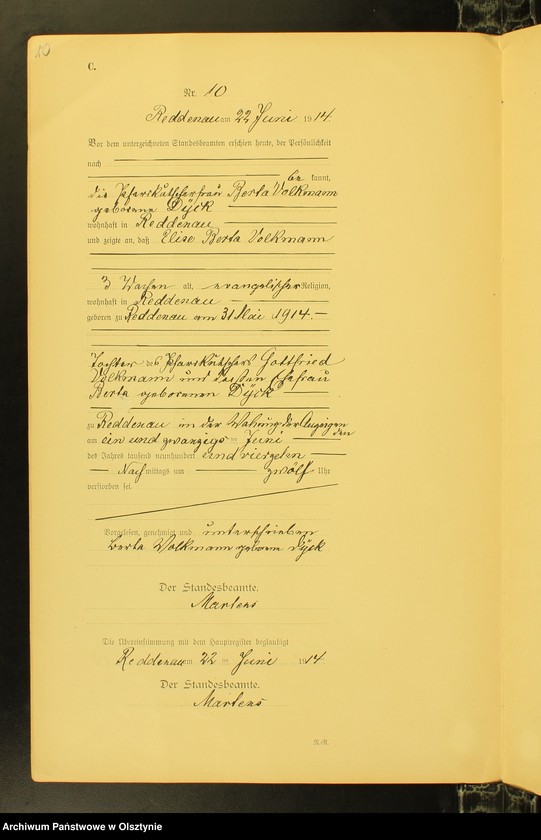 10
C.
Nr. 10
Reddenau am 22 Juni 1914
Vor dem unterzeichneten Standesbeamten erschien heute, der Persönlichkeit
nach
be kannt,
die Pfarrkutscherfrau Berta Volkmann
geborene Dÿck
wohnhaft in Reddenau
und zeigte an, daß Elise Berta Volkmann
3 Wochen alt, evangelischer Religion,
wohnhaft in Reddenau
geboren zu Reddenau am 31 Mai 1914.
Tochter des Pfarrkutschers Gottfried
Volkmann und dessen Ehefrau
Berta geborenen Dÿck
zu Reddenau in der Wohnung der Anzeigen
den
am ein und zwanzigs ten Juni
des Jahres tausend neunhundert und vierzehn
Nach mittags um zwölf Uhr
verstorben sei.
Vorgelesen, genehmigt und unterschrieben
Berta Volkmann geborene Dÿck
Der Standesbeamte.
Martens
Die Übereinstimmung mit dem Hauptregister beglaubigt
Reddenau am 22 ten Juni 1914.
Der Standesbeamte.
Martens
Archiwum Państwowe w Olsztynie